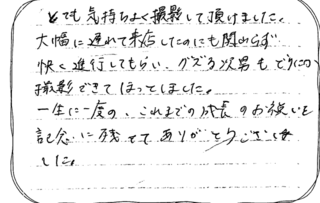 とても気持ちよく撮影して頂けました。
大幅に遅れて来店したのにも関わらず
快く進行してもらい、グズる次男もどうにか
撮影できてほっとしました。
一生に一度の、これまでの成長のお祝いを
記念に残せてありがとうございま
した。